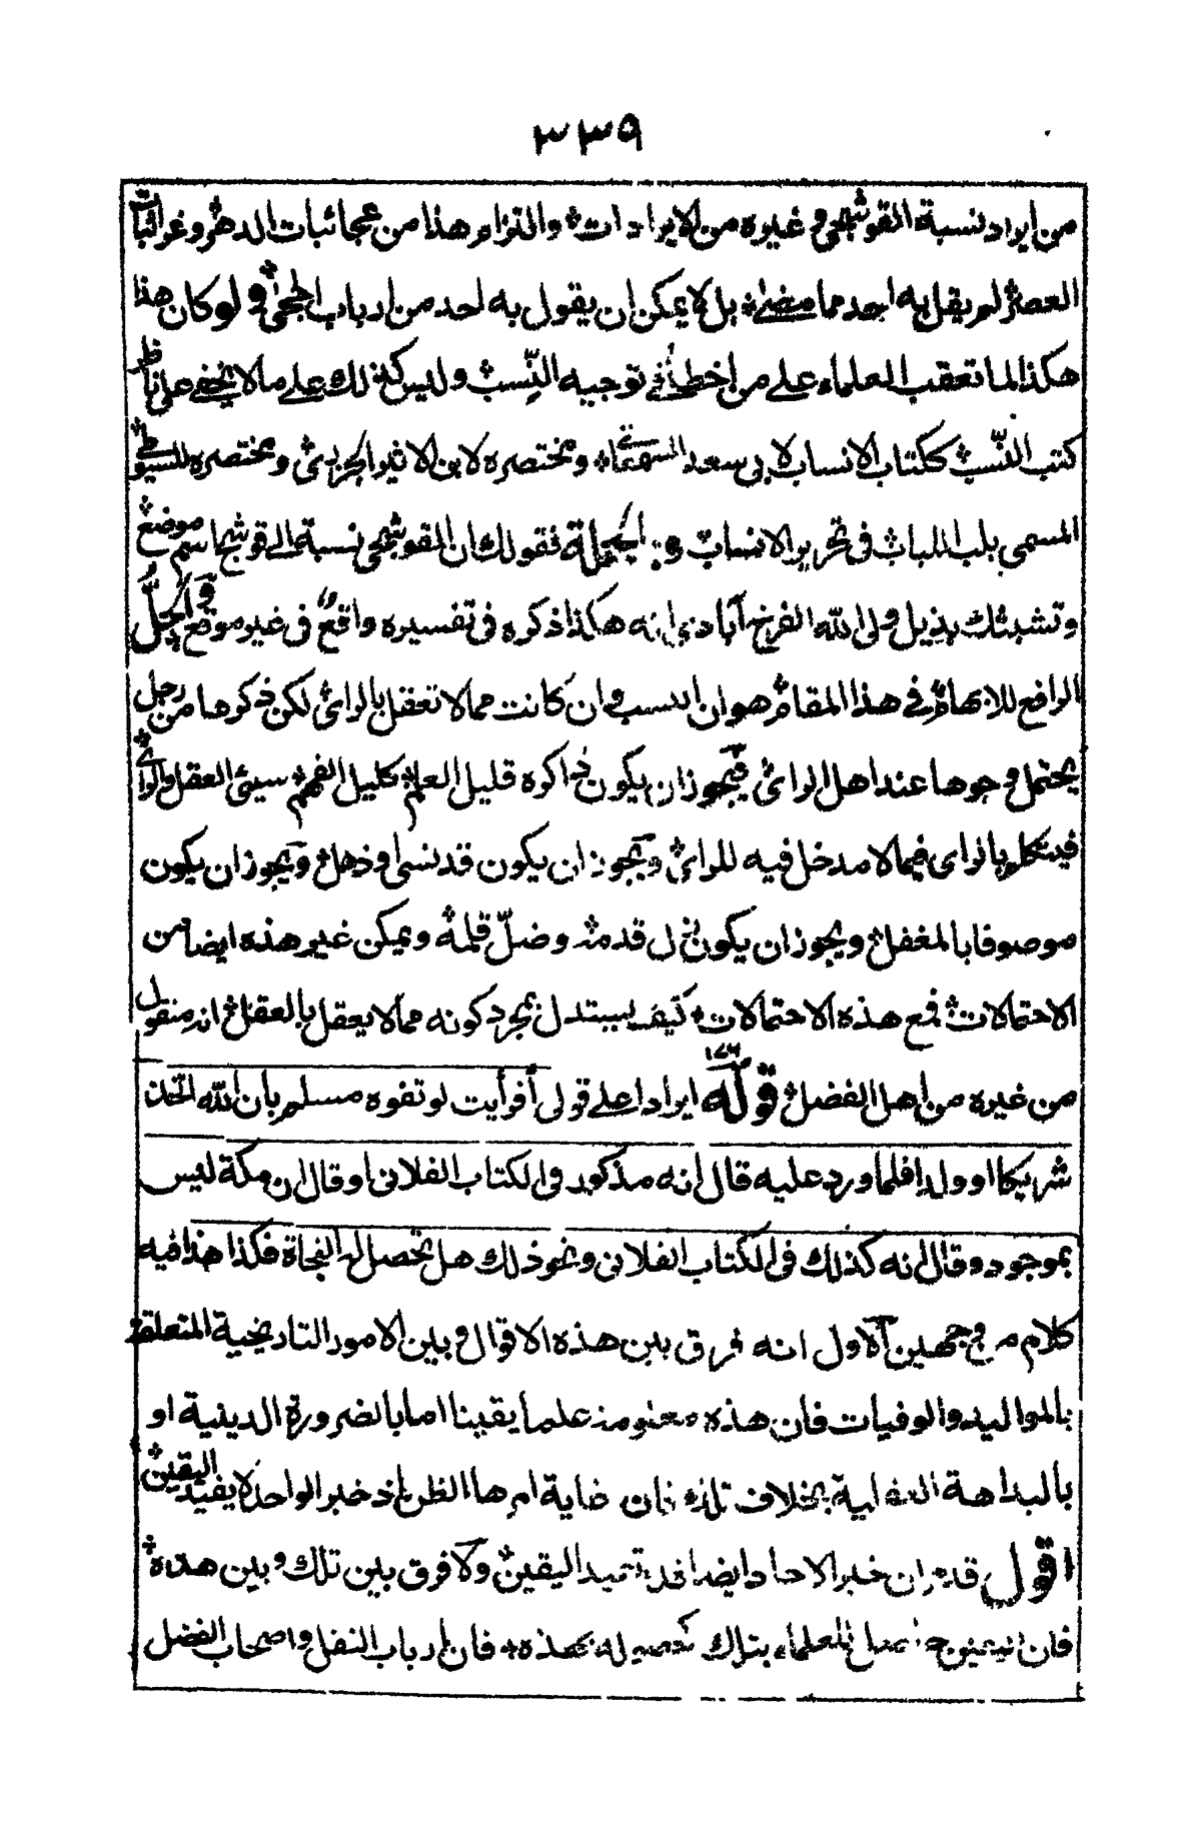 ٣٣٩
من ايراد نسبة القوشجي وغيره من الايرادات والتزام هذا من عجائبات الدهر وغرائبات
العصر لم يقل به احد مما مضى بل لا يمكن ان يقول به احد من ارباب الحجى ولو كان هذا
هكذا لما تعقب العلماء على من اخطأ في توجيه النسب وليس كذلك على ما لا يخفى على ناظر
كتب النسب ككتاب الانساب لابي سعد السمعاني ومختصره لابن الاثير الجزري ومختصره للسيوطي
المسمى بلب اللباب في تحرير الانساب وبالجملة فقولك ان القوشجي نسبة الى قوشج اسم موضع
وتشبثك بذيل ولى الله الفرخ آبادي انه هكذا ذكره في تفسيره واقع في غير موقع والحل
الرافع للابهام في هذا المقام هو ان النسب وان كانت مما لا تعقل بالرائ لكن ذكرها من رجل
يحتمل وجوها عند اهل الرائ فيجوز ان يكون ذاكره قليل العلم كليل الفهم سيئ العقل والرائ
فيتكلم بالراى فيما لا مدخل فيه للرائ ويجوز ان يكون قد نسى او ذهل ويجوز ان يكون
موصوفا بالمغفل ويجوز ان يكون زل قدمه وضلّ قلمه ويمكن غير هذه ايضا من
الاحتمالات فمع هذه الاحتمالات كيف يستدل بمجرد كونه مما لا يعقل بالعقل انه منقول
من غيره من اهل الفضل قوله ١٧٦ ايرادا على قولى أفرأيت لو تفوه مسلم بان الله اتخذ
شريكا او ولدا فلما ورد عليه قال انه مذكور في الكتاب الفلانى او قال ان مكة ليس
بموجود وقال انه كذلك في الكتاب الفلانى ونحو ذلك هل تحصل له النجاة فكذا هذا فيه
كلام من وجهين الاول انه فرق بين هذه الاقوال وبين الامور التاريخية المتعلقة
بالمواليد والوفيات فان هذه معلومة علما يقينا اما بالضرورة الدينية او
بالبداهة العقلية بخلاف تلك فان غاية امرها الظن اذ خبر الواحد لا يفيد اليقين
اقول قد مر ان خبر الاحاد ايضا قد يفيد اليقين ولا فرق بين تلك وبين هذه
فان اليقين حاصل للعلماء بتلك كحصوله بهذه فان ارباب النقل واصحاب الفضل